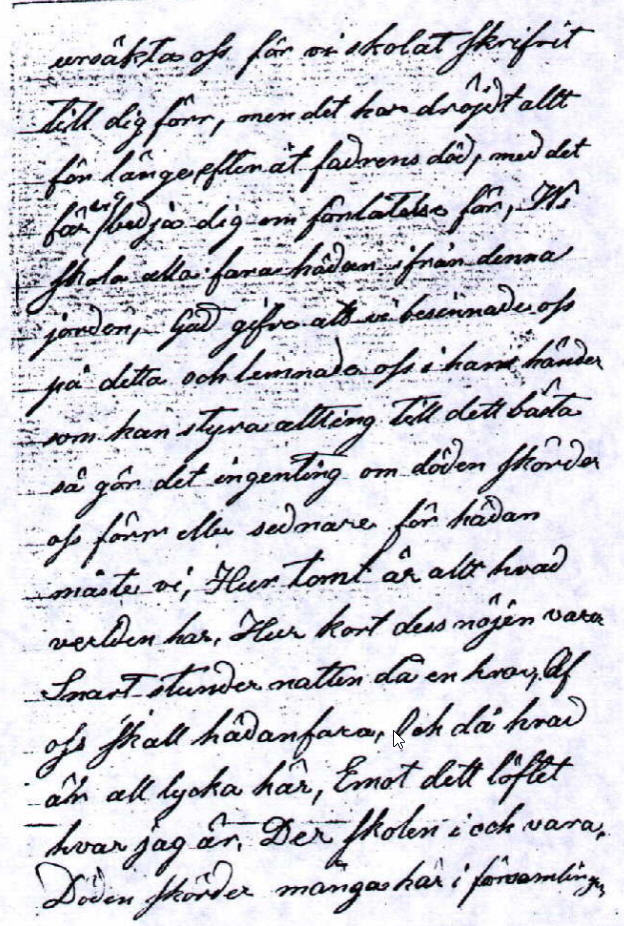 ursäkta oss för vi skolat skrifvit
till dig förr, men det har dröjdt allt
för länge, efteråt fadrens död, med det
får jag bedja dig om förlåtelse för, Wi
skola alla fara hädan ifrån denna
jorden, Gud gifve att vi besinnade oss
på detta och lemnade oss i hans händer
som kan styra allting till dett bästa
så gör det ingenting om döden skördar
oss förr elle sednare för hädan
måste vi, Hur tomt är allt hvad
verlden har, Hur kort dess nöjen vara
Snart stundar natten då en hvar, Af
oss skall hädanfara, Och då hvad
är all lycka här, Emot dett löftet
hvar jag är, Der skolen i och vara,
Döden skördar många här i församlingen